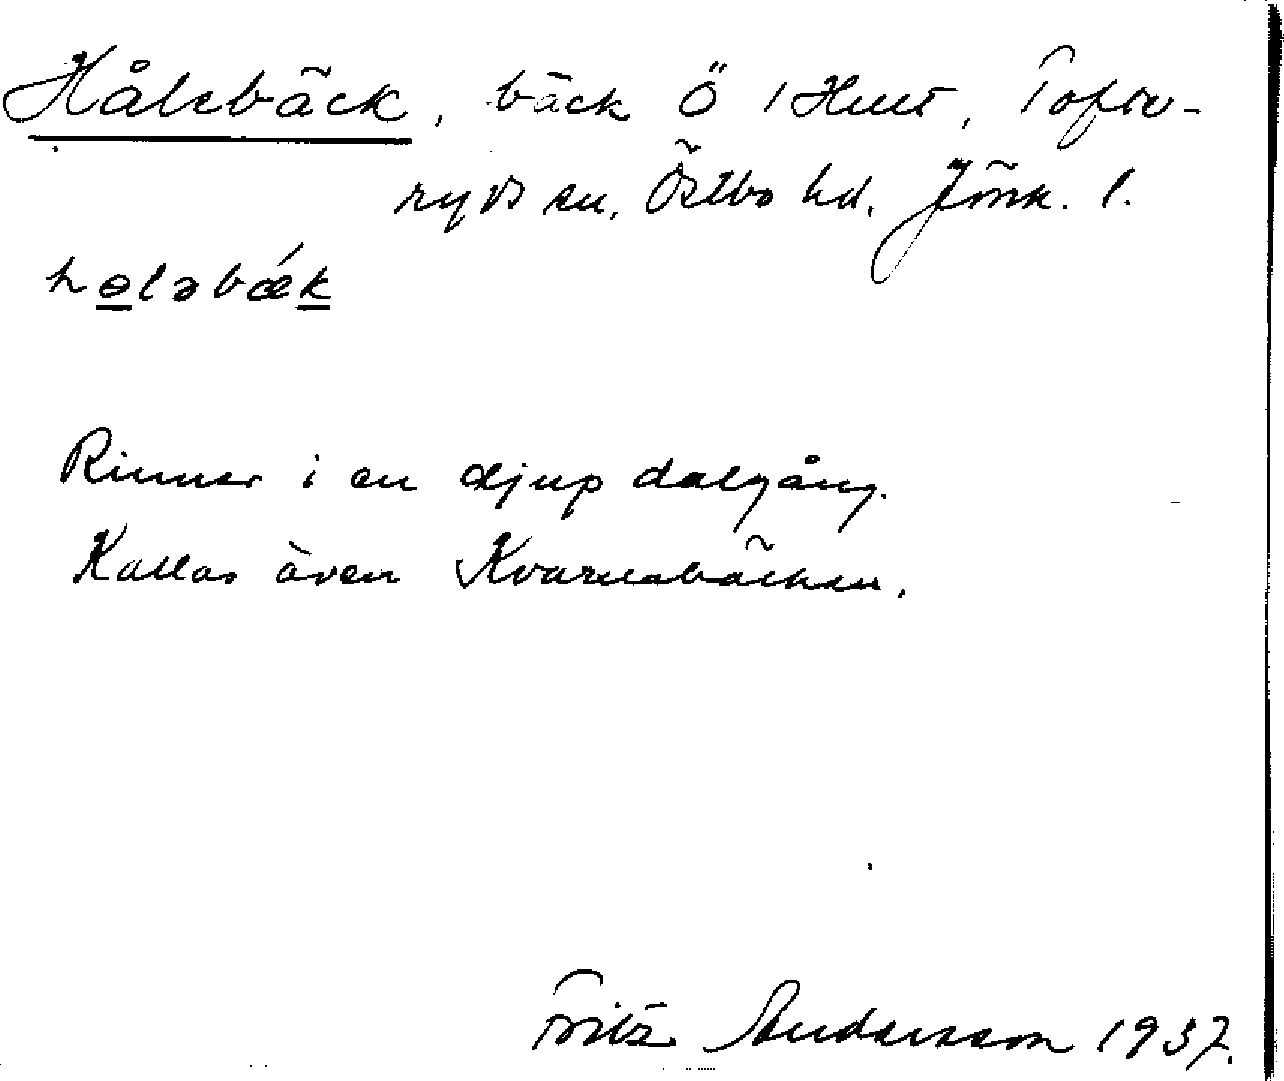 Hålebäck, bäck Ö i Hult, Tofte-
ryds sn, Östbo hd. Jönk. l.
hɵləbǽk
Rinner i en djup dalgång.
Kallas även Kvarnabäcken.
Fritz Andersson 1937.